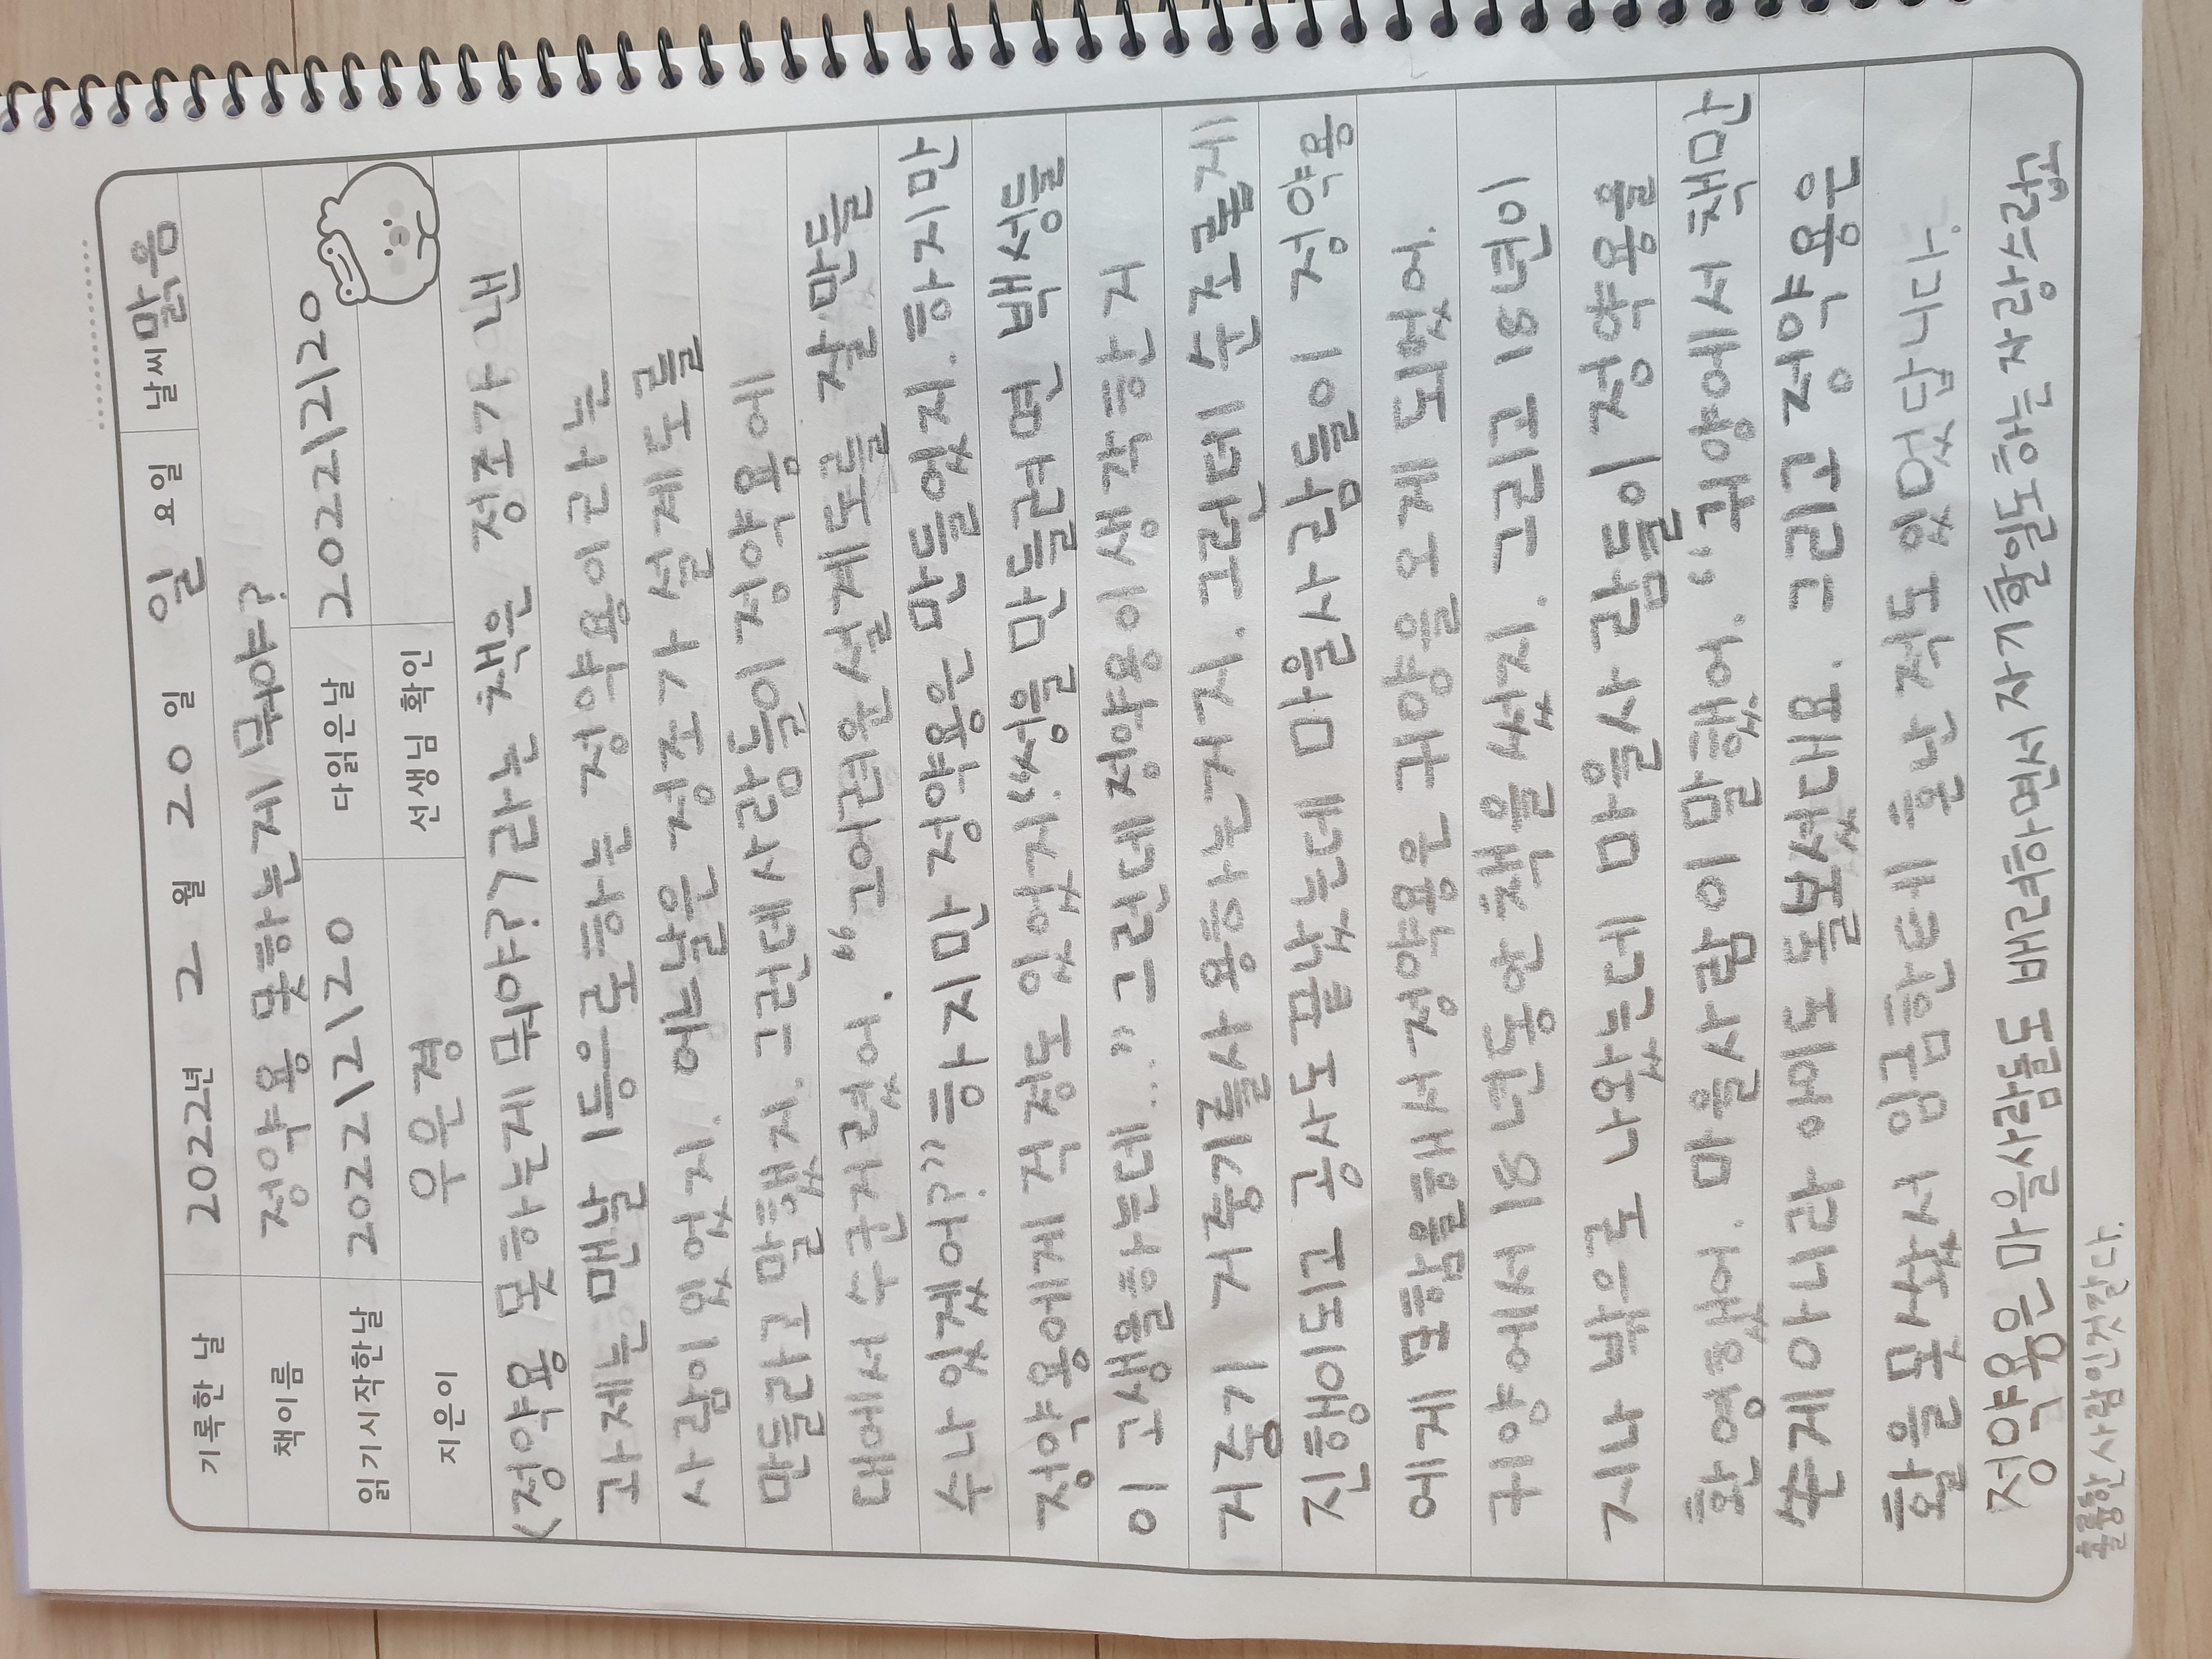 기록한 날 2022년 2 월 20 일 일 요일 날씨 맑음
책이름 정약용 못하는게 뭐야?
읽기시작한날 2022\2\20 다읽은날 2022\2\20
지은이 우은경 선생님 확인
<정약용 못하는게 뭐야?>라는 책은 정조가 낸
과제는 맨날 1등으로하는 정약용이라는
사람이 있었지. 어느날은 정조가 설계도를
만들라고 말했지. 그런데 사람들이 정약용에
대에서 수군거렸어. “그어려운 설계도를 잘 만들
수나 있겠어?” 하지만 정약용은 만들었지. 하지만
정약용에게 걱정도 있었지. “성을 만들려면 백성들
이 고생을하는데...” 그런데 정약용이 생각한 거
거중기 거중기를사용하는거지. 그런데 순조롭게
진행이되고 공사도 끝났는데 마을사람들이 정약용
에게 모함을해서 정약용은 귀양을 오게 되었어.
귀양에서 18년동안 책을 썼지. 그리고 18년이
지나 밖으로 나왔는데 마을사람들이 정약용을
환영했어. 마을사람이 말했어. “귀양에서 책만
쓴게 아니라 아이도 돌보셨대요. 그리고 정약용은
활을 못쐈서 임금한테 혼난 적도 있었답니다.
정약용은 마을사람들도 배려하면서 자기할일도하는 자랑스럽고
훌륭한 사람인것같다.